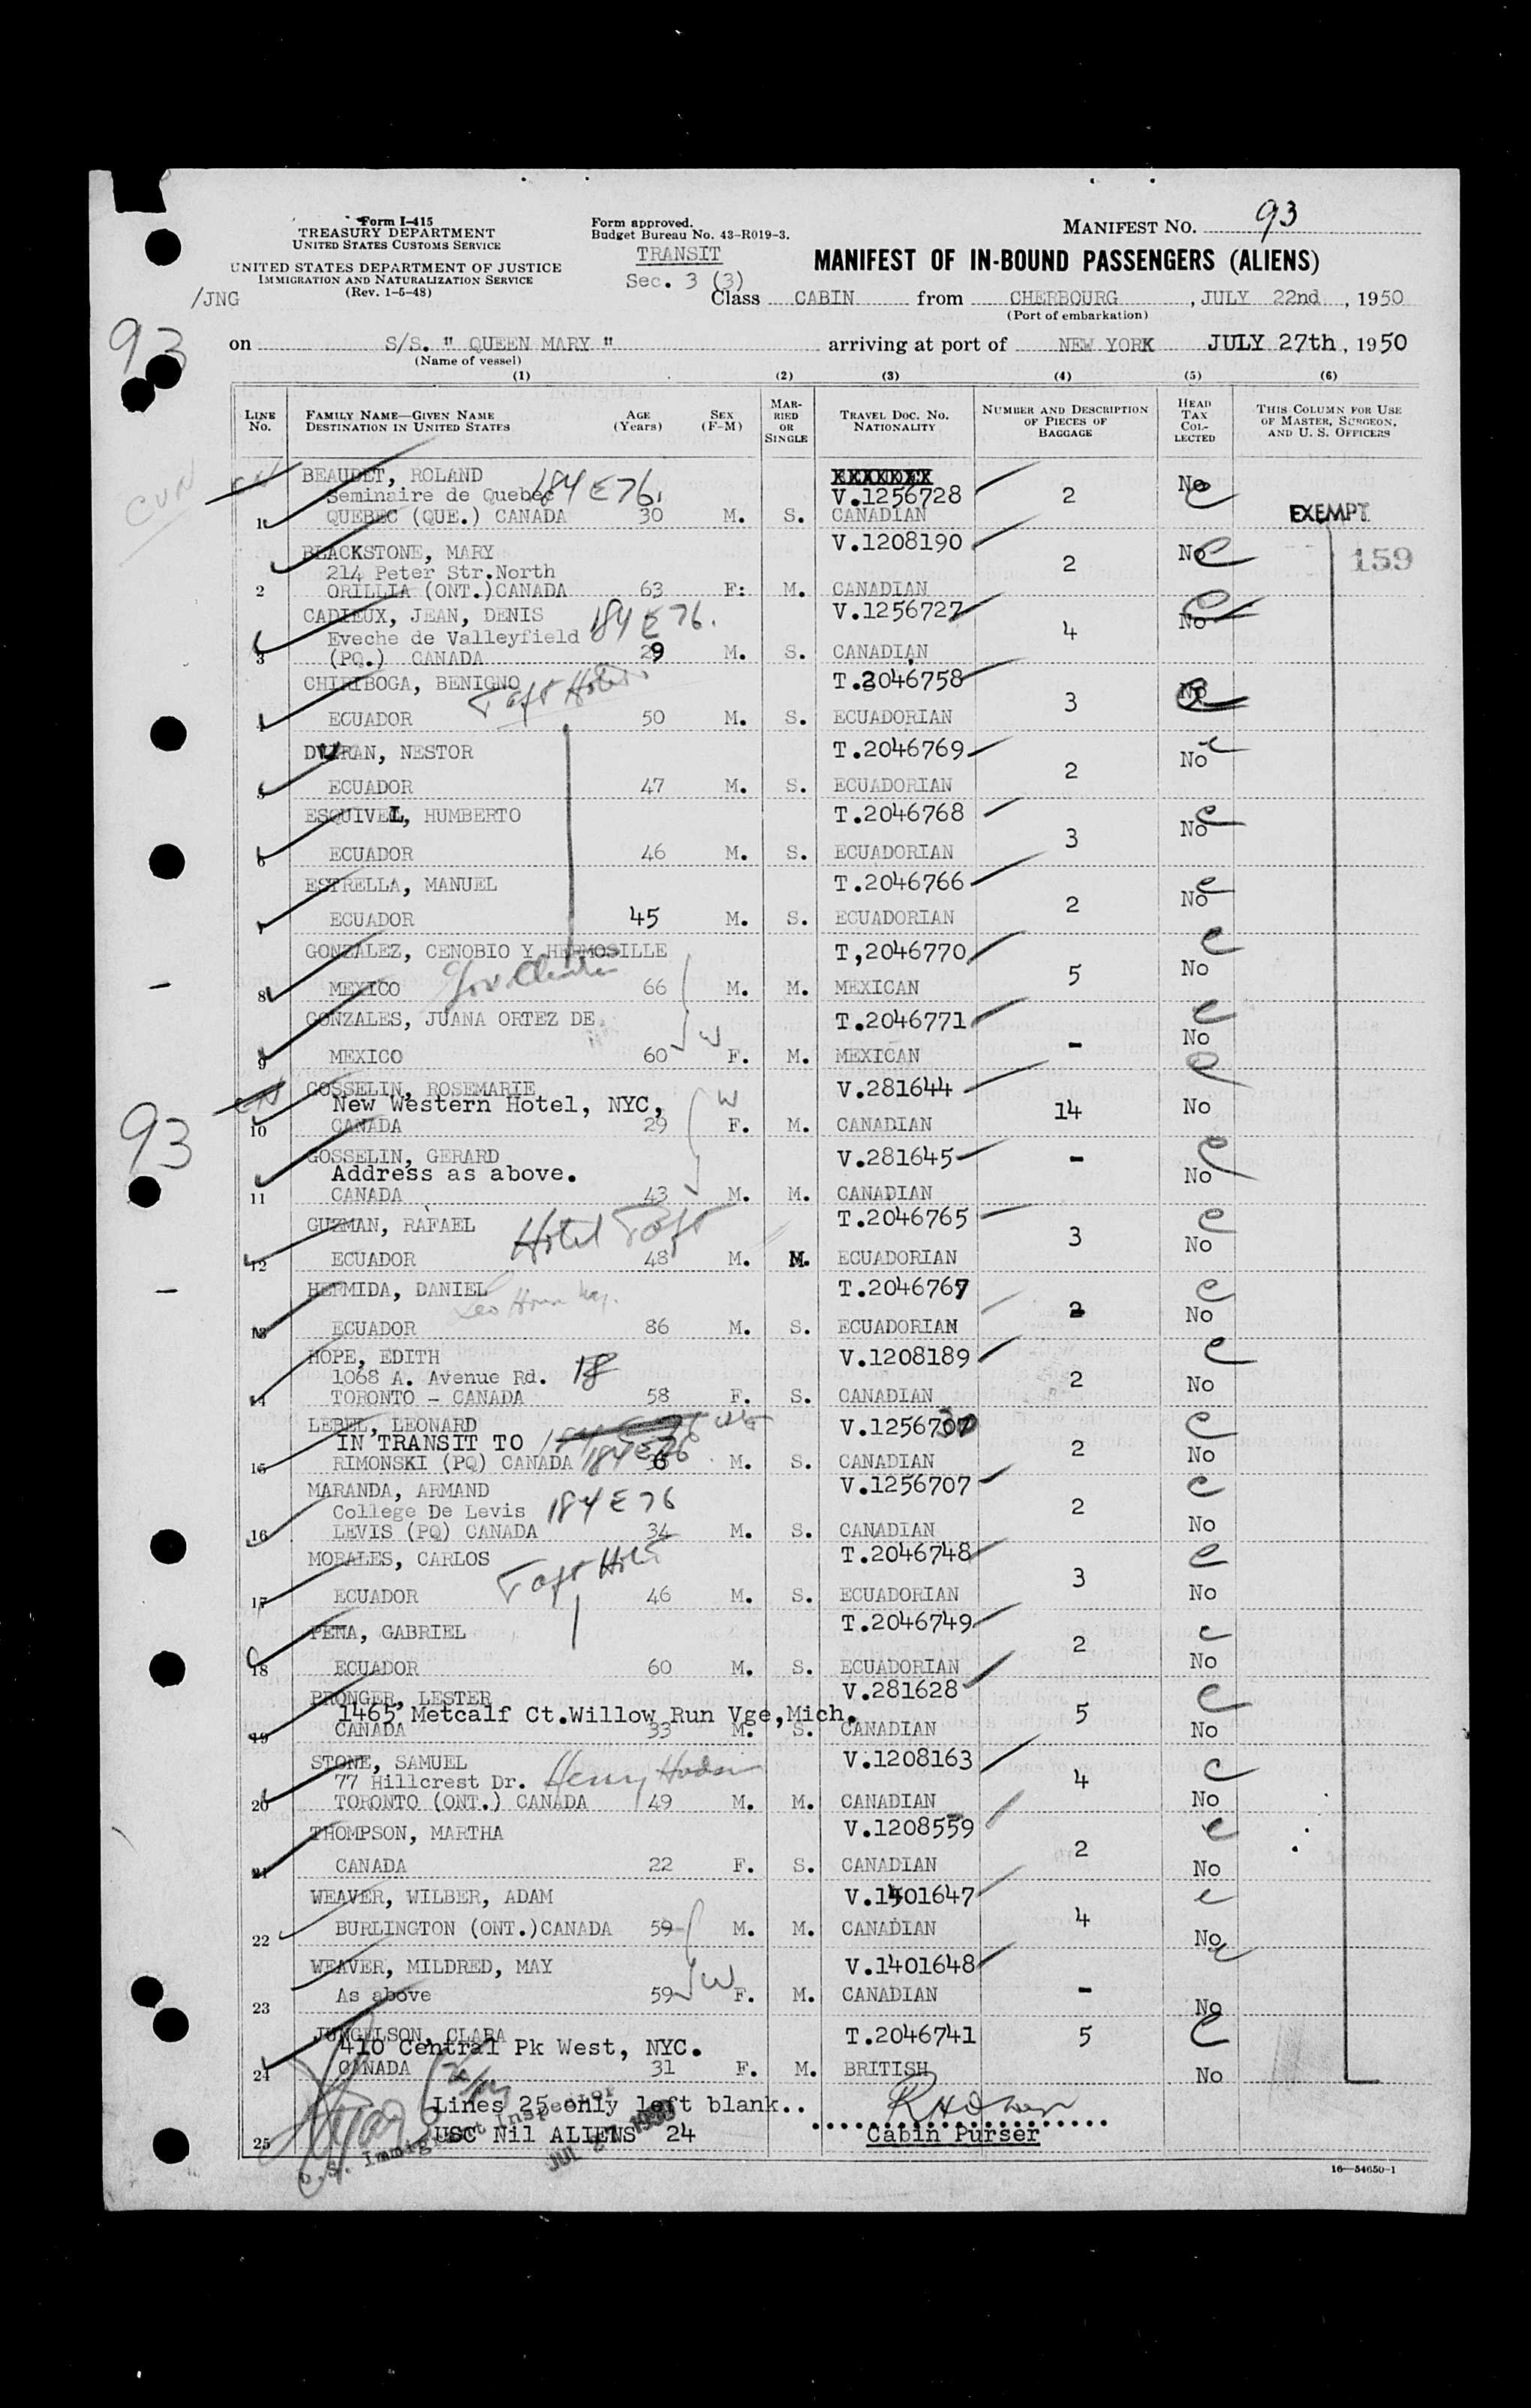 Form I-415
TREASURY DEPARTMENT
UNITED STATES CUSTOMS SERVICE
UNITED STATES DEPARTMENT OF JUSTICE
IMMIGRATION AND NATURALIZATION SERVICE
(Rev. 1-5-48)
/JNG
Form approved.
Budget Bureau No. 43-R019-3.
TRANSIT
Sec. 3 (3)
MANIFEST NO. 93
MANIFEST OF IN-BOUND PASSENGERS (ALIENS)
Class CABIN from CHERBOURG, JULY 22nd, 1950
(Port of embarkation)
93
on S/S. " QUEEN MARY " arriving at port of NEW YORK JULY 27th, 1950
(Name of vessel)
(1) (2) (3) (4) (5) (6)
LINE No. FAMILY NAME—GIVEN NAME DESTINATION IN UNITED STATES AGE (Years) SEX (F-M) MARRIED OR SINGLE TRAVEL DOC. NO. NATIONALITY NUMBER AND DESCRIPTION OF PIECES OF BAGGAGE HEAD TAX COLLECTED THIS COLUMN FOR USE OF MASTER, SURGEON, AND U. S. OFFICERS
CUN
BEAUDET, ROLAND
Seminaire de Quebec 184 E 76. V.1256728 2 No
1 QUEBEC (QUE.) CANADA 30 M. S. CANADIAN EXEMPT
BLACKSTONE, MARY V.1208190 2 No 159
214 Peter Str.North
2 ORILLIA (ONT.)CANADA 63 F: M. CANADIAN
CADIEUX, JEAN, DENIS 184 E 76. V.1256727 4 No
Eveche de Valleyfield
3 (PQ.) CANADA 29 M. S. CANADIAN
CHIRIBOGA, BENIGNO Taft Hotel T.2046758 3 No
4 ECUADOR 50 M. S. ECUADORIAN
DURAN, NESTOR T.2046769 2 No
5 ECUADOR 47 M. S. ECUADORIAN
ESQUIVEL, HUMBERTO T.2046768 3 No
6 ECUADOR 46 M. S. ECUADORIAN
ESTRELLA, MANUEL T.2046766 2 No
7 ECUADOR 45 M. S. ECUADORIAN
GONZALEZ, CENOBIO Y HERMOSILLE T,2046770 5 No
8 MEXICO Gov Clinton 66 M. M. MEXICAN
GONZALES, JUANA ORTEZ DE T.2046771 - No
9 MEXICO 60 W F. M. MEXICAN
GOSSELIN, ROSEMARIE V.281644 14 No
New Western Hotel, NYC, W
10 CANADA 29 F. M. CANADIAN
93
GOSSELIN, GERARD V.281645 - No
Address as above.
11 CANADA 43 M. M. CANADIAN
GUZMAN, RAFAEL Hotel Taft T.2046765 3 No
12 ECUADOR 48 M. M. ECUADORIAN
HERMIDA, DANIEL T.2046767 2 No
13 ECUADOR 86 M. S. ECUADORIAN
HOPE, EDITH V.1208189 2 No
1068 A. Avenue Rd. 18
14 TORONTO - CANADA 58 F. S. CANADIAN
LEBEL, LEONARD V.1256730 2 No
IN TRANSIT TO
15 RIMONSKI (PQ) CANADA 184 E 76 M. S. CANADIAN
MARANDA, ARMAND V.1256707 2 No
College De Levis 184 E 76
16 LEVIS (PQ) CANADA 34 M. S. CANADIAN
MORALES, CARLOS Taft Hotel T.2046748 3 No
17 ECUADOR 46 M. S. ECUADORIAN
PENA, GABRIEL T.2046749 2 No
18 ECUADOR 60 M. S. ECUADORIAN
PRONGER, LESTER V.281628 5 No
1465 Metcalf Ct.Willow Run Vge,Mich.
19 CANADA 33 M. S. CANADIAN
STONE, SAMUEL V.1208163 4 No
77 Hillcrest Dr. Henry Hudson
20 TORONTO (ONT.) CANADA 49 M. M. CANADIAN
THOMPSON, MARTHA V.1208559 2 No
21 CANADA 22 F. S. CANADIAN
WEAVER, WILBER, ADAM V.1401647 4 No
22 BURLINGTON (ONT.)CANADA 59 M. M. CANADIAN
WEAVER, MILDRED, MAY V.1401648 - No
23 As above 59 W F. M. CANADIAN
JUNGELSON, CLARA T.2046741 5 No
410 Central Pk West, NYC.
24 CANADA 31 F. M. BRITISH
Lines 25 only left blank..
25 USC Nil ALIENS 24 Cabin Purser
U.S. Immigrant Inspector
JUL 27 1950
16-54650-1